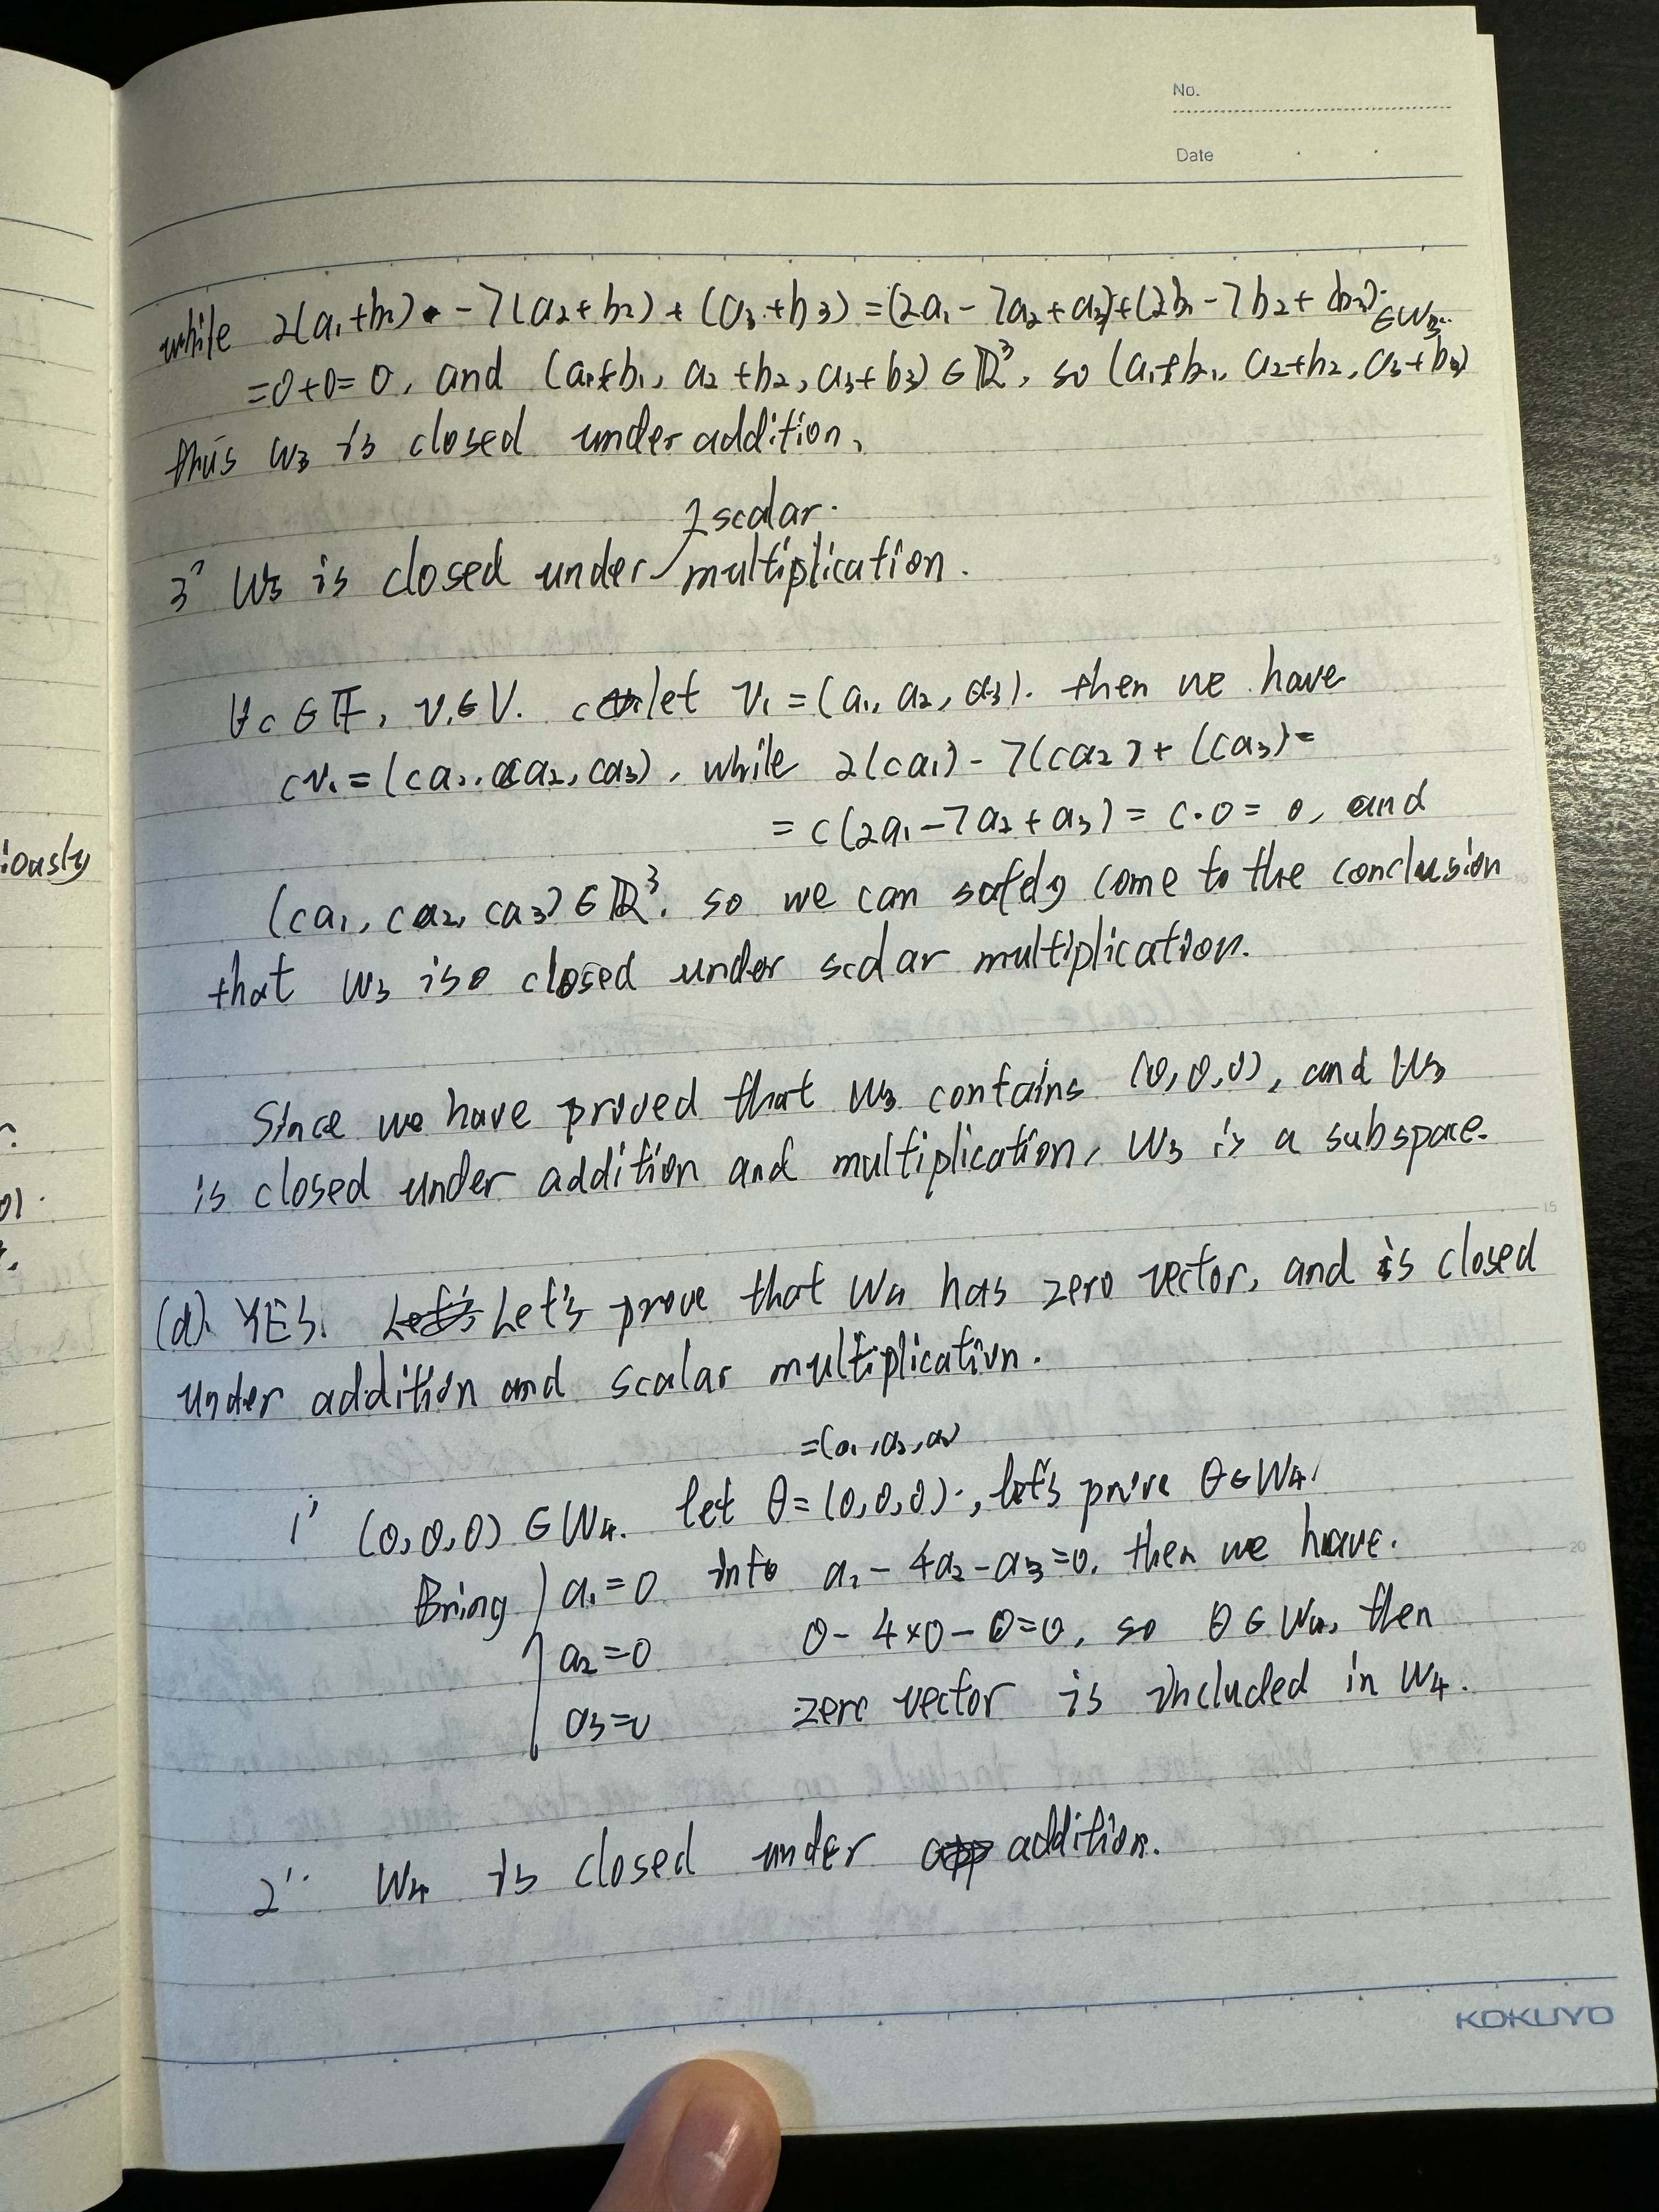 No.
Date
while 2(a₁+b₁) - 7(a₂+b₂) + (a₃+b₃) = (2a₁ - 7a₂ + a₃) + (2b₁ - 7b₂ + b₃)
=0+0=0, and (a₁+b₁, a₂+b₂, a₃+b₃) ∈ ℝ³, so (a₁+b₁, a₂+b₂, a₃+b₃) ∈W₃.
thus W₃ is closed under addition,
scalar.
3° W₃ is closed under multiplication.
∀c∈𝔽, v₁∈V. let v₁ = (a₁, a₂, a₃). then we have
cv₁ = (ca₁, ca₂, ca₃), while 2(ca₁) - 7(ca₂) + (ca₃) =
= c(2a₁ - 7a₂ + a₃) = c·0 = 0, and
(ca₁, ca₂, ca₃) ∈ ℝ³. so we can safely come to the conclusion
that W₃ is closed under scalar multiplication.
Since we have proved that W₃ contains (0,0,0), and W₃
is closed under addition and multiplication, W₃ is a subspace.
(d) YES. Let's Let's prove that W₄ has zero vector, and is closed
under addition and scalar multiplication.
=(a₁, a₂, a₃)
1° (0,0,0) ∈ W₄. let θ = (0,0,0), let's prove θ∈W₄.
Bring { a₁=0 into a₁ - 4a₂ - a₃ = 0. then we have.
a₂=0 0 - 4×0 - 0 = 0, so θ ∈ W₄, then
a₃=0 zero vector is included in W₄.
2° W₄ is closed under addition.
KOKUYO
iously